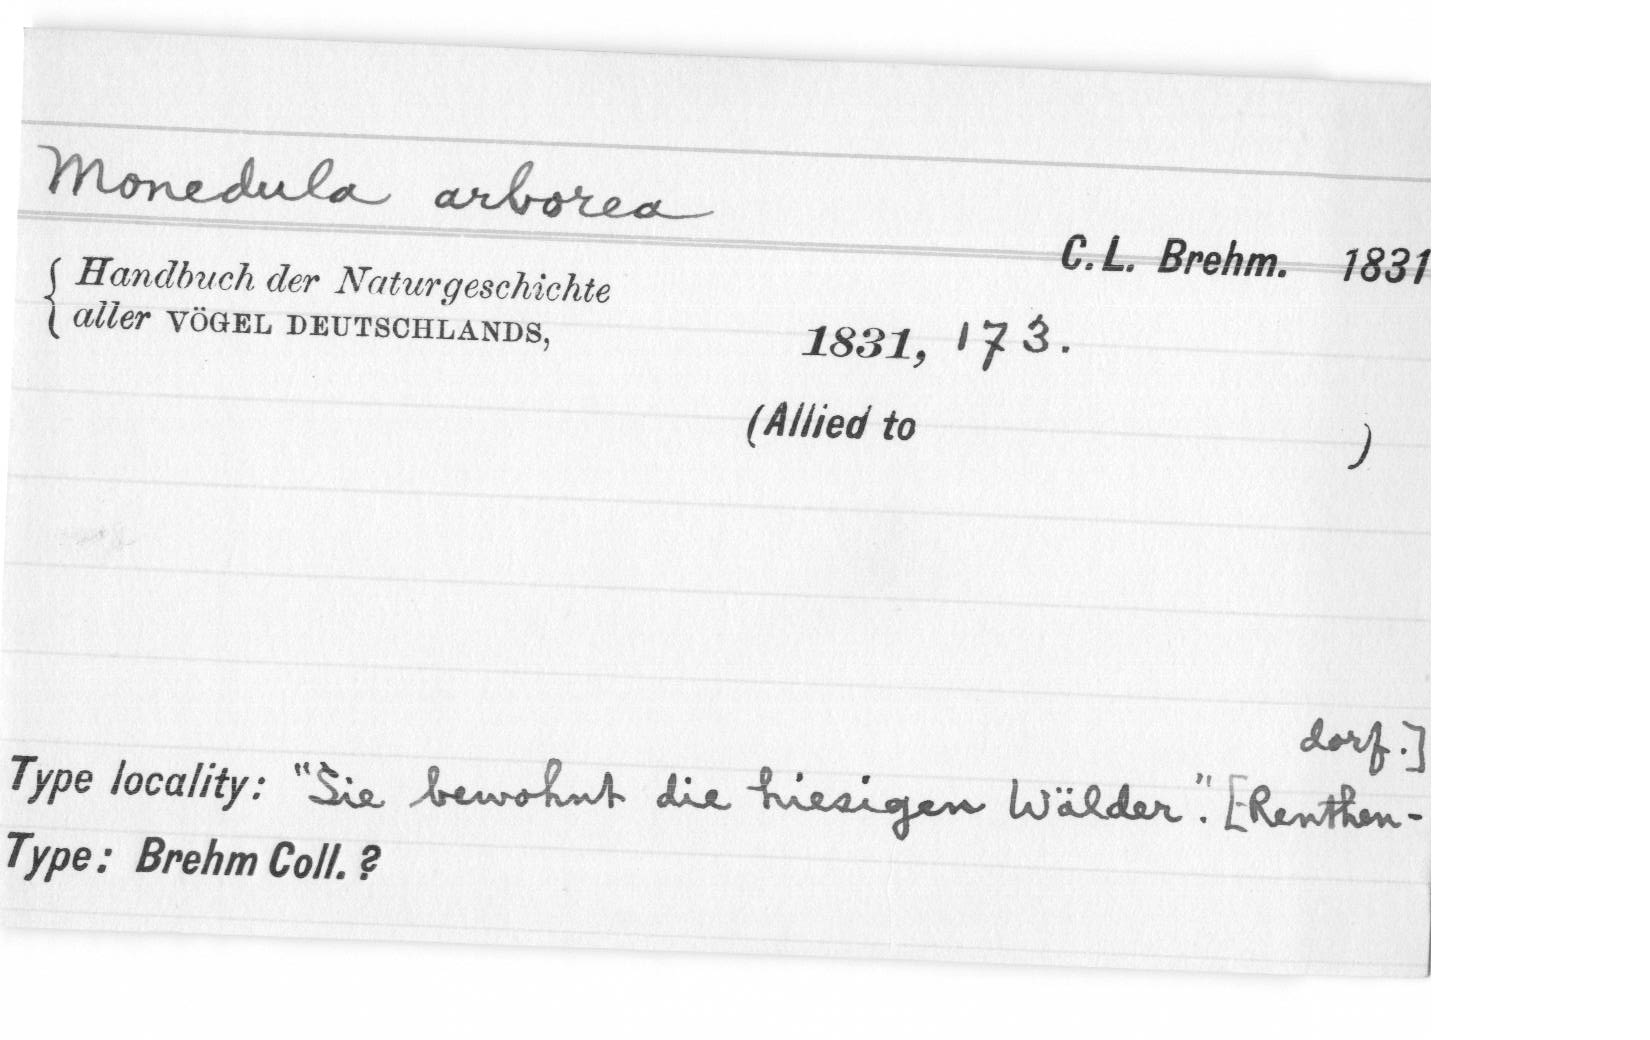 Monedula arborea
C. L. Brehm. 1831
Handbuch der Naturgeschichte
aller VÖGEL DEUTSCHLANDS,
1831, 173.
(Allied to )
Type locality: "Sie bewohnt die hiesigen Wälder". [Renthen-
dorf.]
Type: Brehm Coll. ?